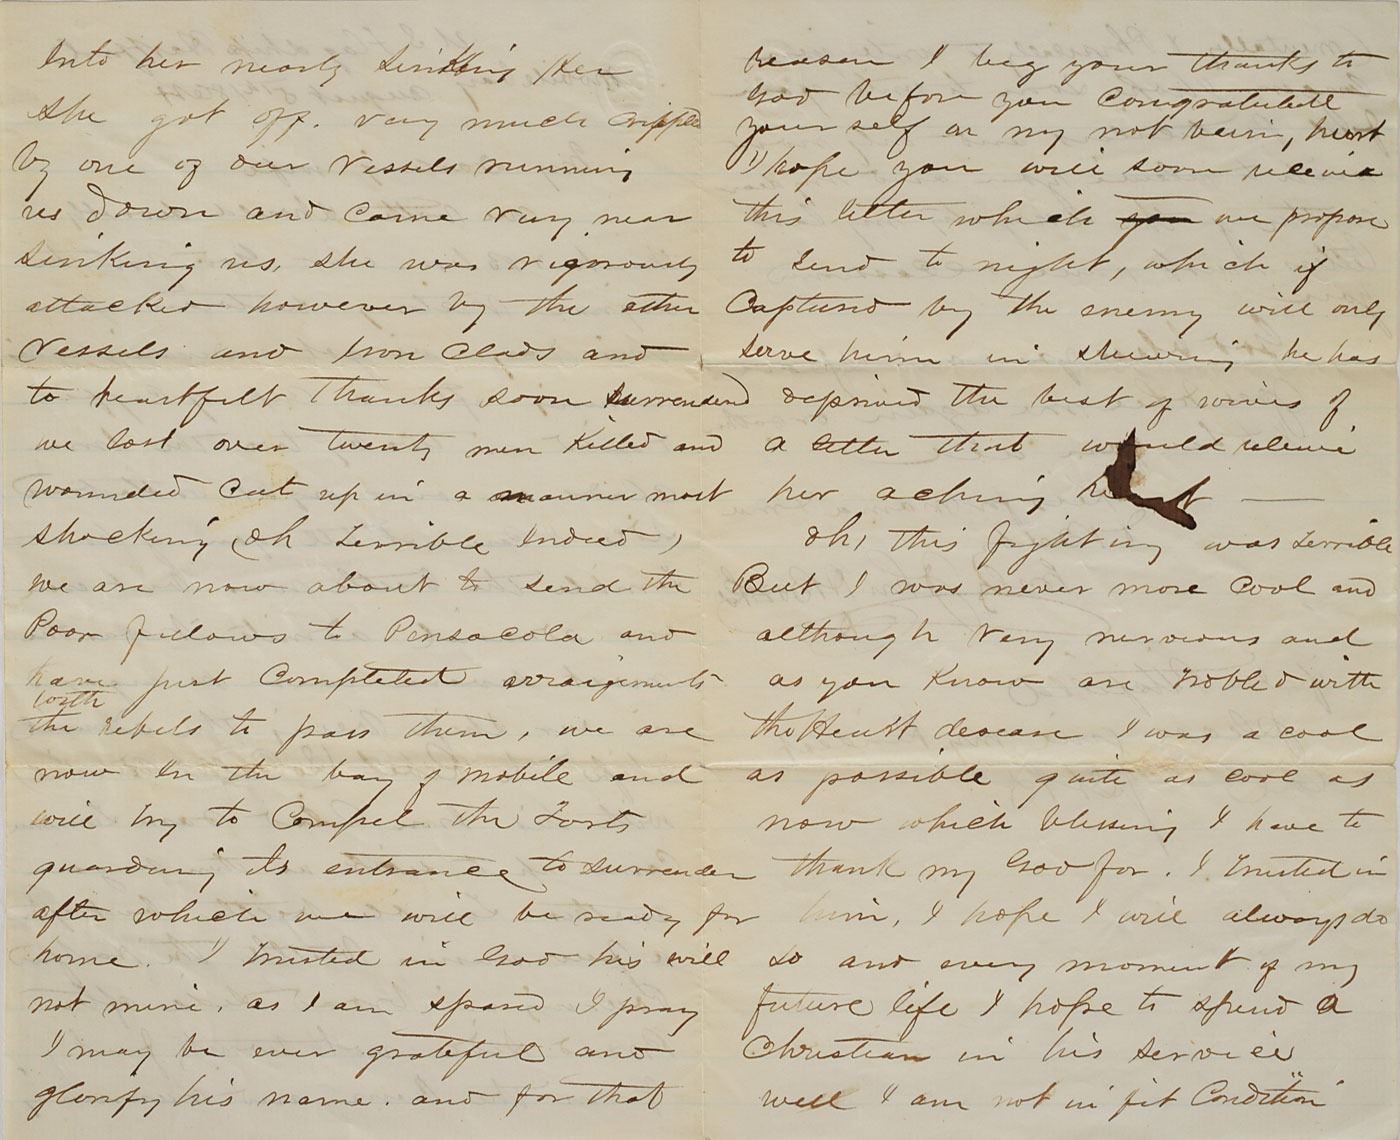 Into her nearly Sinking Her
She got off. Very much cripple
by one of our Vessels running
us down and came very near
Sinking us. She was vigorously
attacked however by the other
Vessels and Iron Clads and
to heartfelt thanks soon surrendered
we lost over twenty men Killed and
wounded Cut up in a manner most
shocking (oh Terrible Indeed)
we are now about to send the
Poor fellows to Pensacola and
have just Completed arraigements
with
the rebels to pass them, we are
now In the bay of Mobile and
will try to Compel the Forts
guarding its entrance to surrender
after which we will be ready for
home. I trusted in God his will
not mine. as I am spared I pray
I may be ever grateful and
glorify his name. and for that
reason I beg your thanks to
God before you congratulate
your self on my not being hurt
I hope you will soon receive
this letter which you we propose
to send to night, which if
Captured by the enemy will only
serve him in shewing he has
deprived the best of wives of
a letter that would relieve
her aching he t —
Oh, this fighting was terrible
But I was never more Cool and
although Very nervous and
as you Know are Trobled with
the Heart desease I was a cool
as possible quite as cool as
now which blessing I have to
thank my God for. I Trusted in
him, I hope I will always do
so and every moment of my
future life I hope to spend a
Christian in his service
well I am not in fit Condition